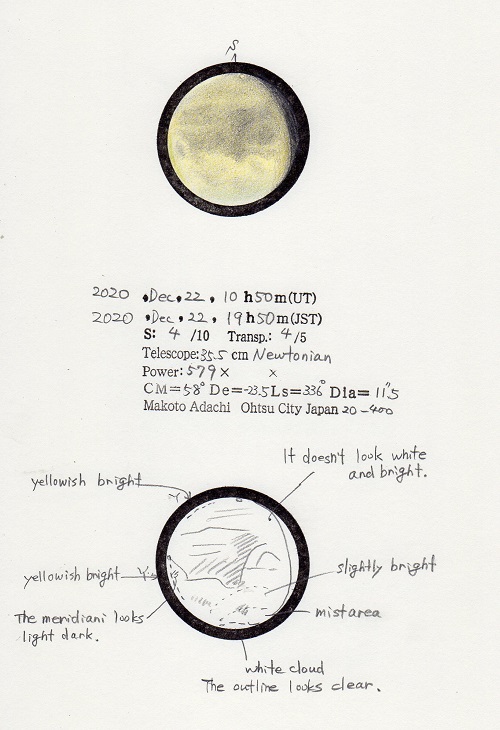 S
2020 Dec. 22, 10 h50m(UT)
2020 Dec. 22, 19h50m(JST)
S: 4 /10 Transp.: 4/5
Telescope:35.5 cm Newtonian
Power: 579× ×
CM=58° De=-23.5 Ls=336° Dia= 11"5
Makoto Adachi Ohtsu City Japan 20-400
It doesn't look white
and bright.
yellowish bright
Y
yellowish bright
Y
slightly bright
The meridiani looks
light dark.
mistarea
white cloud
The outline looks clear.